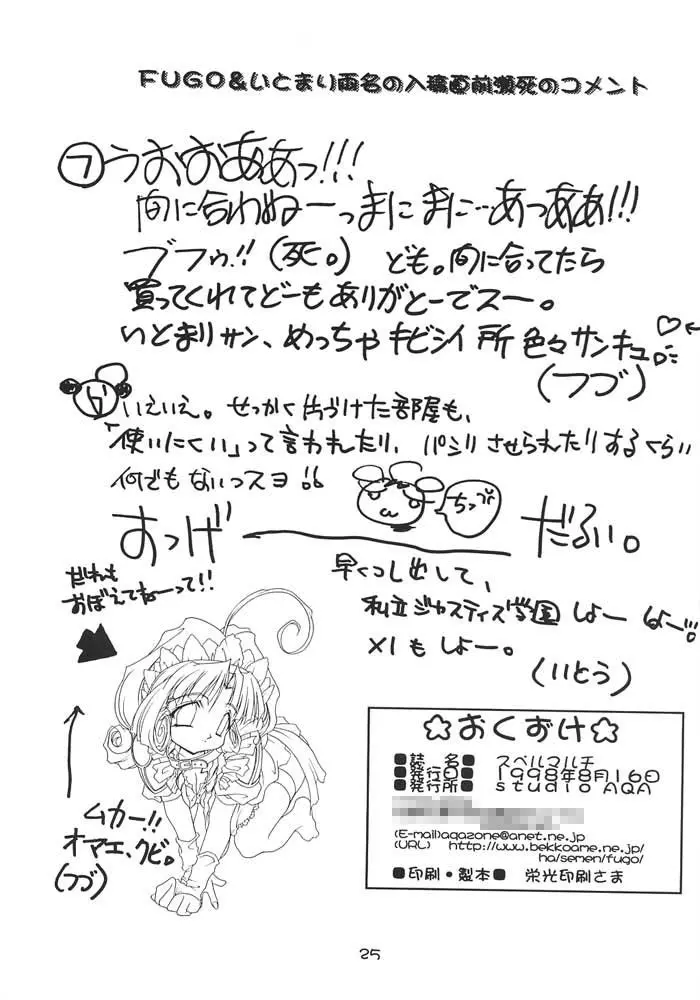 FUGO&いとまり両名の入稿直前瀕死のコメント
フ うおおああっ!!!
間に合わぬーっまにまに…あっああ!!!
ブフゥ!!(死。) ども。間に合ってたら
買ってくれてどーもありがとーでスー。
いとまりサン、めっちゃキビシイ所色々サンキュ♡
(フづ)
いえいえ。せっかく片づけた部屋も、
「使いにくい」って言われたり、パシリさせられたりするくらい
何でもないっスヨ!!
ちっぷ
おっげーだるい。
だれも
おぼえてねーって!!
早くつし出して、
私立ジャスティス学園しよー しよー!!
XIもしよー。
(いとう)
ムカー!!
オマエ、クビ。
(フづ)
☆おくづけ☆
■誌 名■ スペルマルチ
■発行日■ 1998年8月16日
■発行所■ studio AQA
(E-mail)aqazone@anet.ne.jp
(URL) http://www.bekkoame.ne.jp/
ha/semen/fugo/
■印刷・製本■ 栄光印刷さま
25